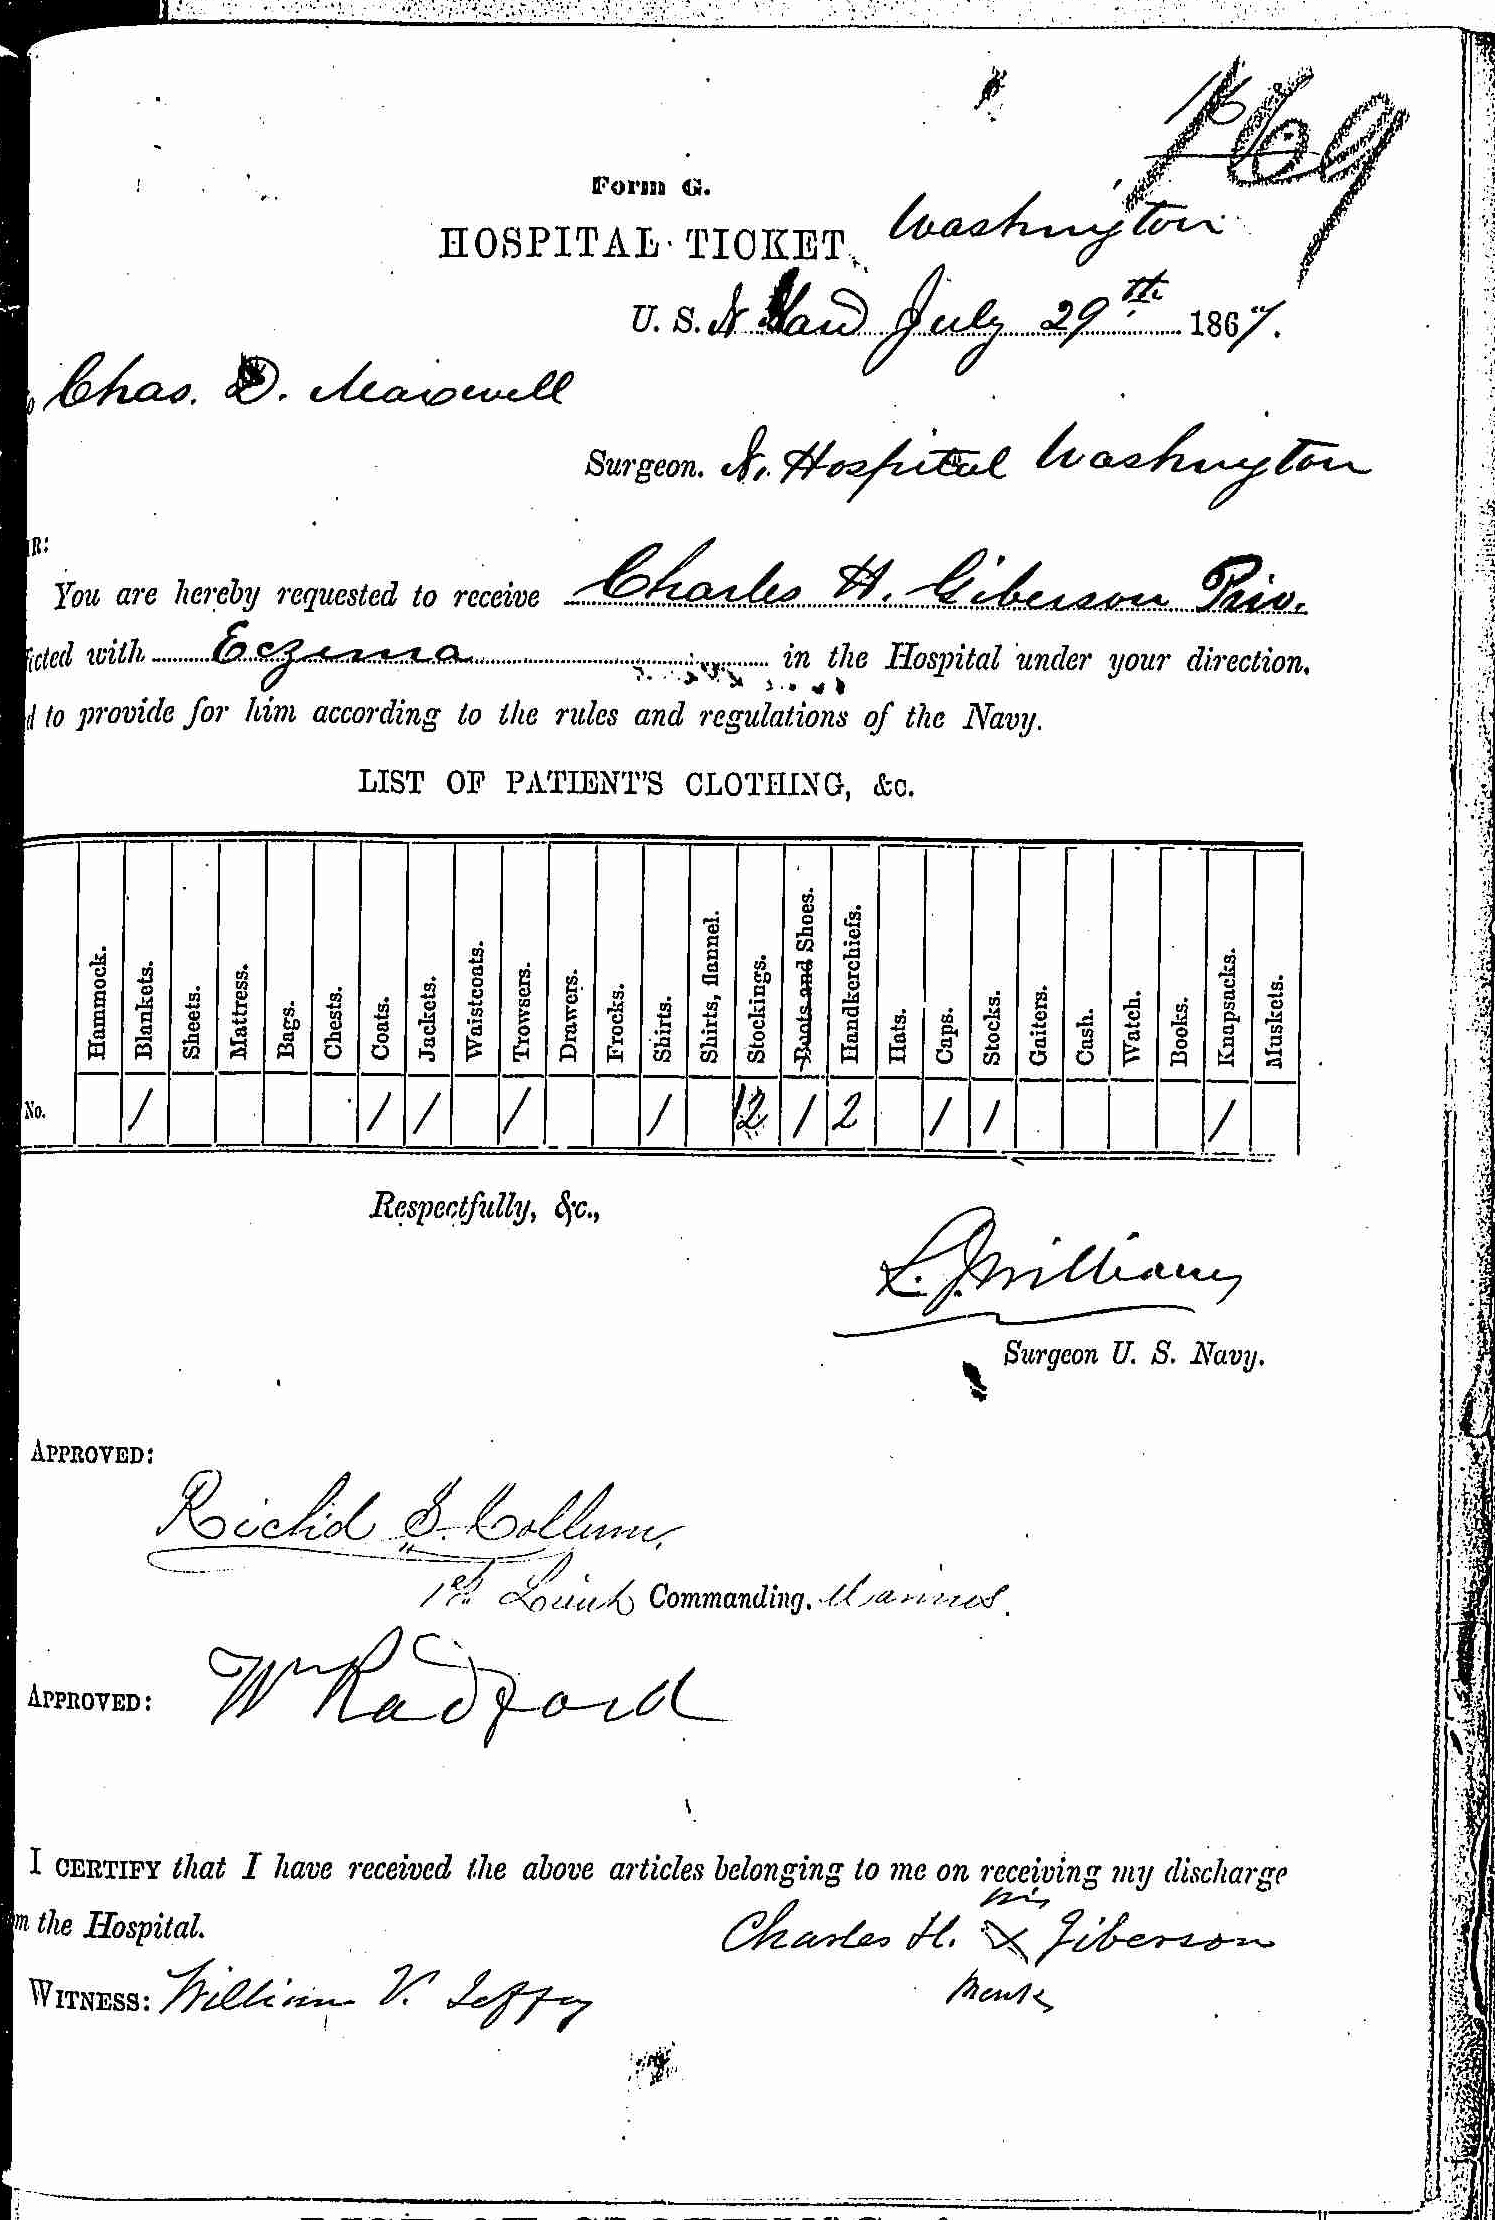 169
Form G.
HOSPITAL TICKET, Washington
U. S. N. Yard July 29th 1867.
Chas. D. Maxwell
Surgeon. N. Hospital Washington
R:
You are hereby requested to receive Charles H. Giberson Priv.
icted with Eczema in the Hospital under your direction.
d to provide for him according to the rules and regulations of the Navy.
LIST OF PATIENT'S CLOTHING, &c.
Hammock. Blankets. Sheets. Mattress. Bags. Chests. Coats. Jackets. Waistcoats. Trowsers. Drawers. Frocks. Shirts. Shirts, flannel. Stockings. Boots and Shoes. Handkerchiefs. Hats. Caps. Stocks. Gaiters. Cash. Watch. Books. Knapsacks. Muskets.
No. 1 1 1 1 1 2 1 2 1 1 1
Respectfully, &c.,
L. J. Williams
Surgeon U. S. Navy.
APPROVED:
Richd S. Collum,
1st Lieut Commanding. Marines.
APPROVED: Wm Radford
I CERTIFY that I have received the above articles belonging to me on receiving my discharge
m the Hospital.
his
Charles H. X Giberson
mark
WITNESS: William V.